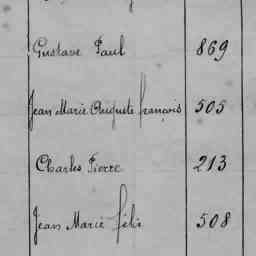 Gustave Paul 869
Jean Marie Auguste françois 505
Charles Pierre 213
Jean Marie félix 508